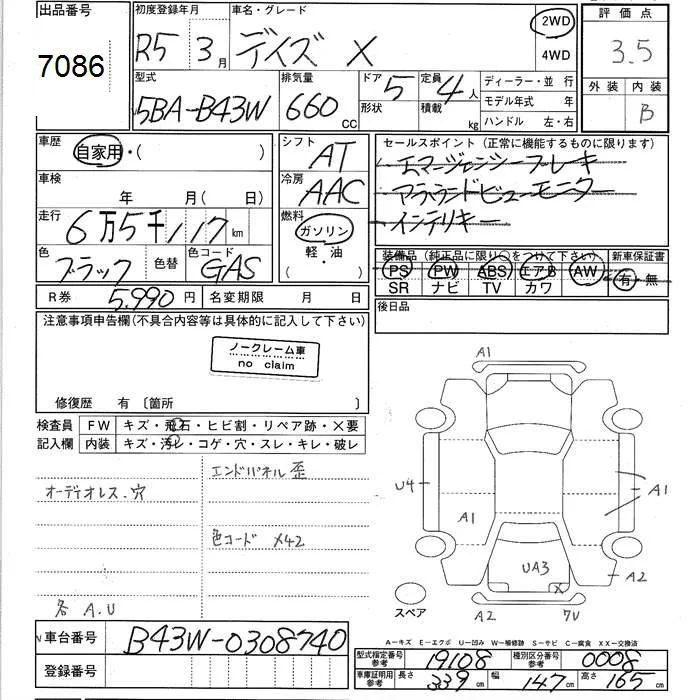 出品番号 初度登録年月 車名・グレード 2WD 評価点
7086 R5 3月 デイズ X 4WD 3.5
型式 排気量 ドア 5 定員 4人 ディーラー・並 行 外装 内装
5BA-B43W 660 CC 形状 積載 kg モデル年式 年 B
ハンドル 左・右
車歴 自家用・( ) シフト AT セールスポイント(正常に機能するものに限ります)
エマージェンシーブレーキ
車検 年 月( 日) 冷房 AAC アラウンドビューモニター
走行 6万5千117km 燃料 ガソリン インテリキー
色 ブラック 色替 色コード GAS 軽・油 ( ) 装備品(純正品に限り○をつけて下さい) 新車保証書
PS PW ABS エアB AW 有・無
R券 5,990円 名変期限 月 日 SR ナビ TV カワ
注意事項申告欄(不具合内容等は具体的に記入して下さい) 後日品
ノークレーム車
no claim
修復歴 有 〔箇所 〕
検査員 FW キズ・飛石・ヒビ割・リペア跡・×要
記入欄 内装 キズ・汚レ・コゲ・穴・スレ・キレ・破レ
エンドパネル 歪
オーディオレス・穴
色コード X42
各 A.U
A1
U4 A1 A1
UA3 X A2
A2 7U
スペア
A-キズ E-エクボ U-凹み W-補修跡 S-サビ C-腐食 XX-交換済
車台番号 B43W-0308740 型式指定番号 参考 19108 種別区分番号 参考 0008
登録番号 車庫証明用 参考 長さ 339cm 幅 147cm 高さ 165cm